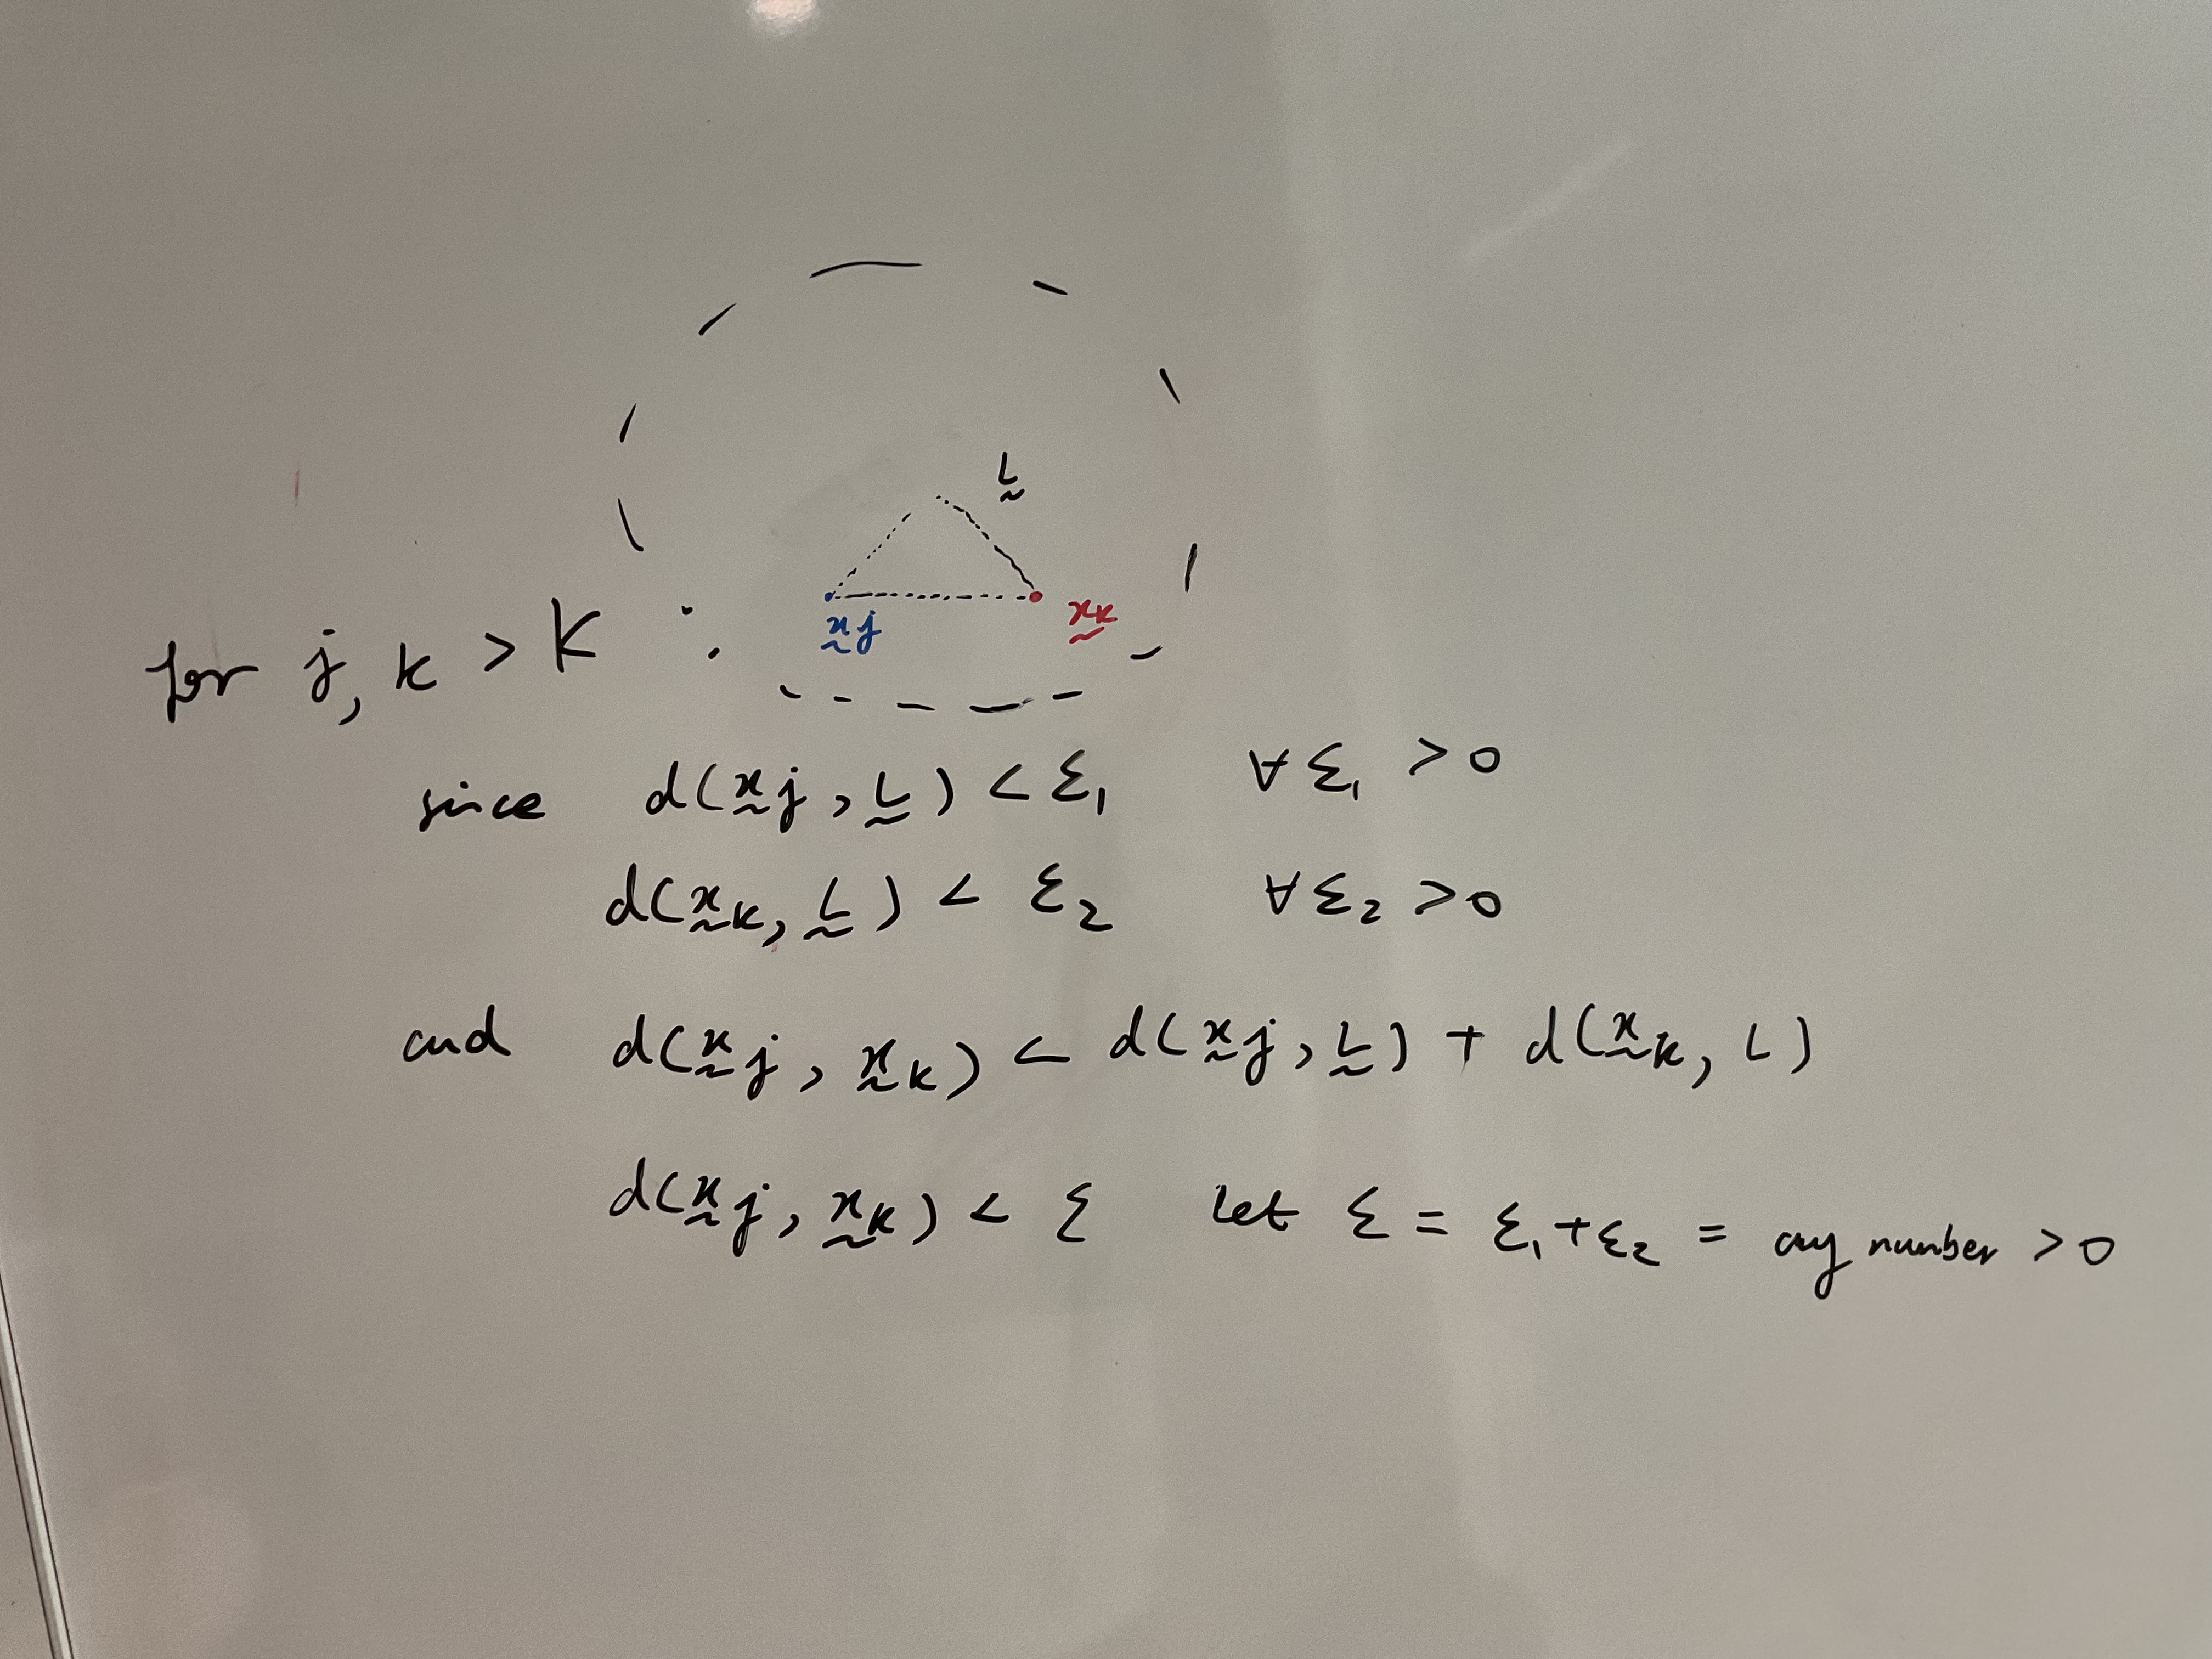 L
xj xk
for j, k > K :
since d(xj, L) < ε1 ∀ ε1 > 0
d(xk, L) < ε2 ∀ ε2 > 0
and d(xj, xk) < d(xj, L) + d(xk, L)
d(xj, xk) < ε let ε = ε1 + ε2 = any number > 0